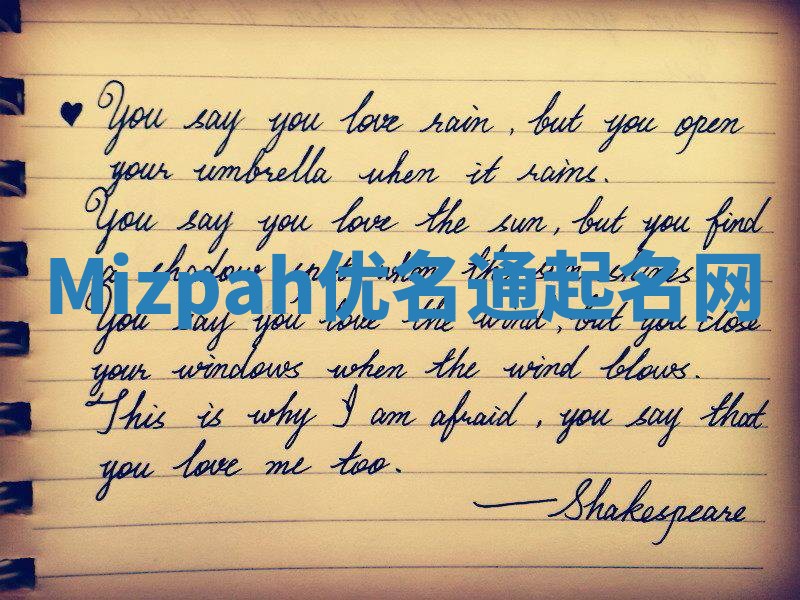 ♥ You say you love rain, but you open
your umbrella when it rains.
You say you love the sun, but you find
a shadow spot when the sun shines
Mizpah优名通起名网
You say you love the wind, but you close
your windows when the wind blows.
This is why I am afraid, you say that
you love me too.
—Shakespeare